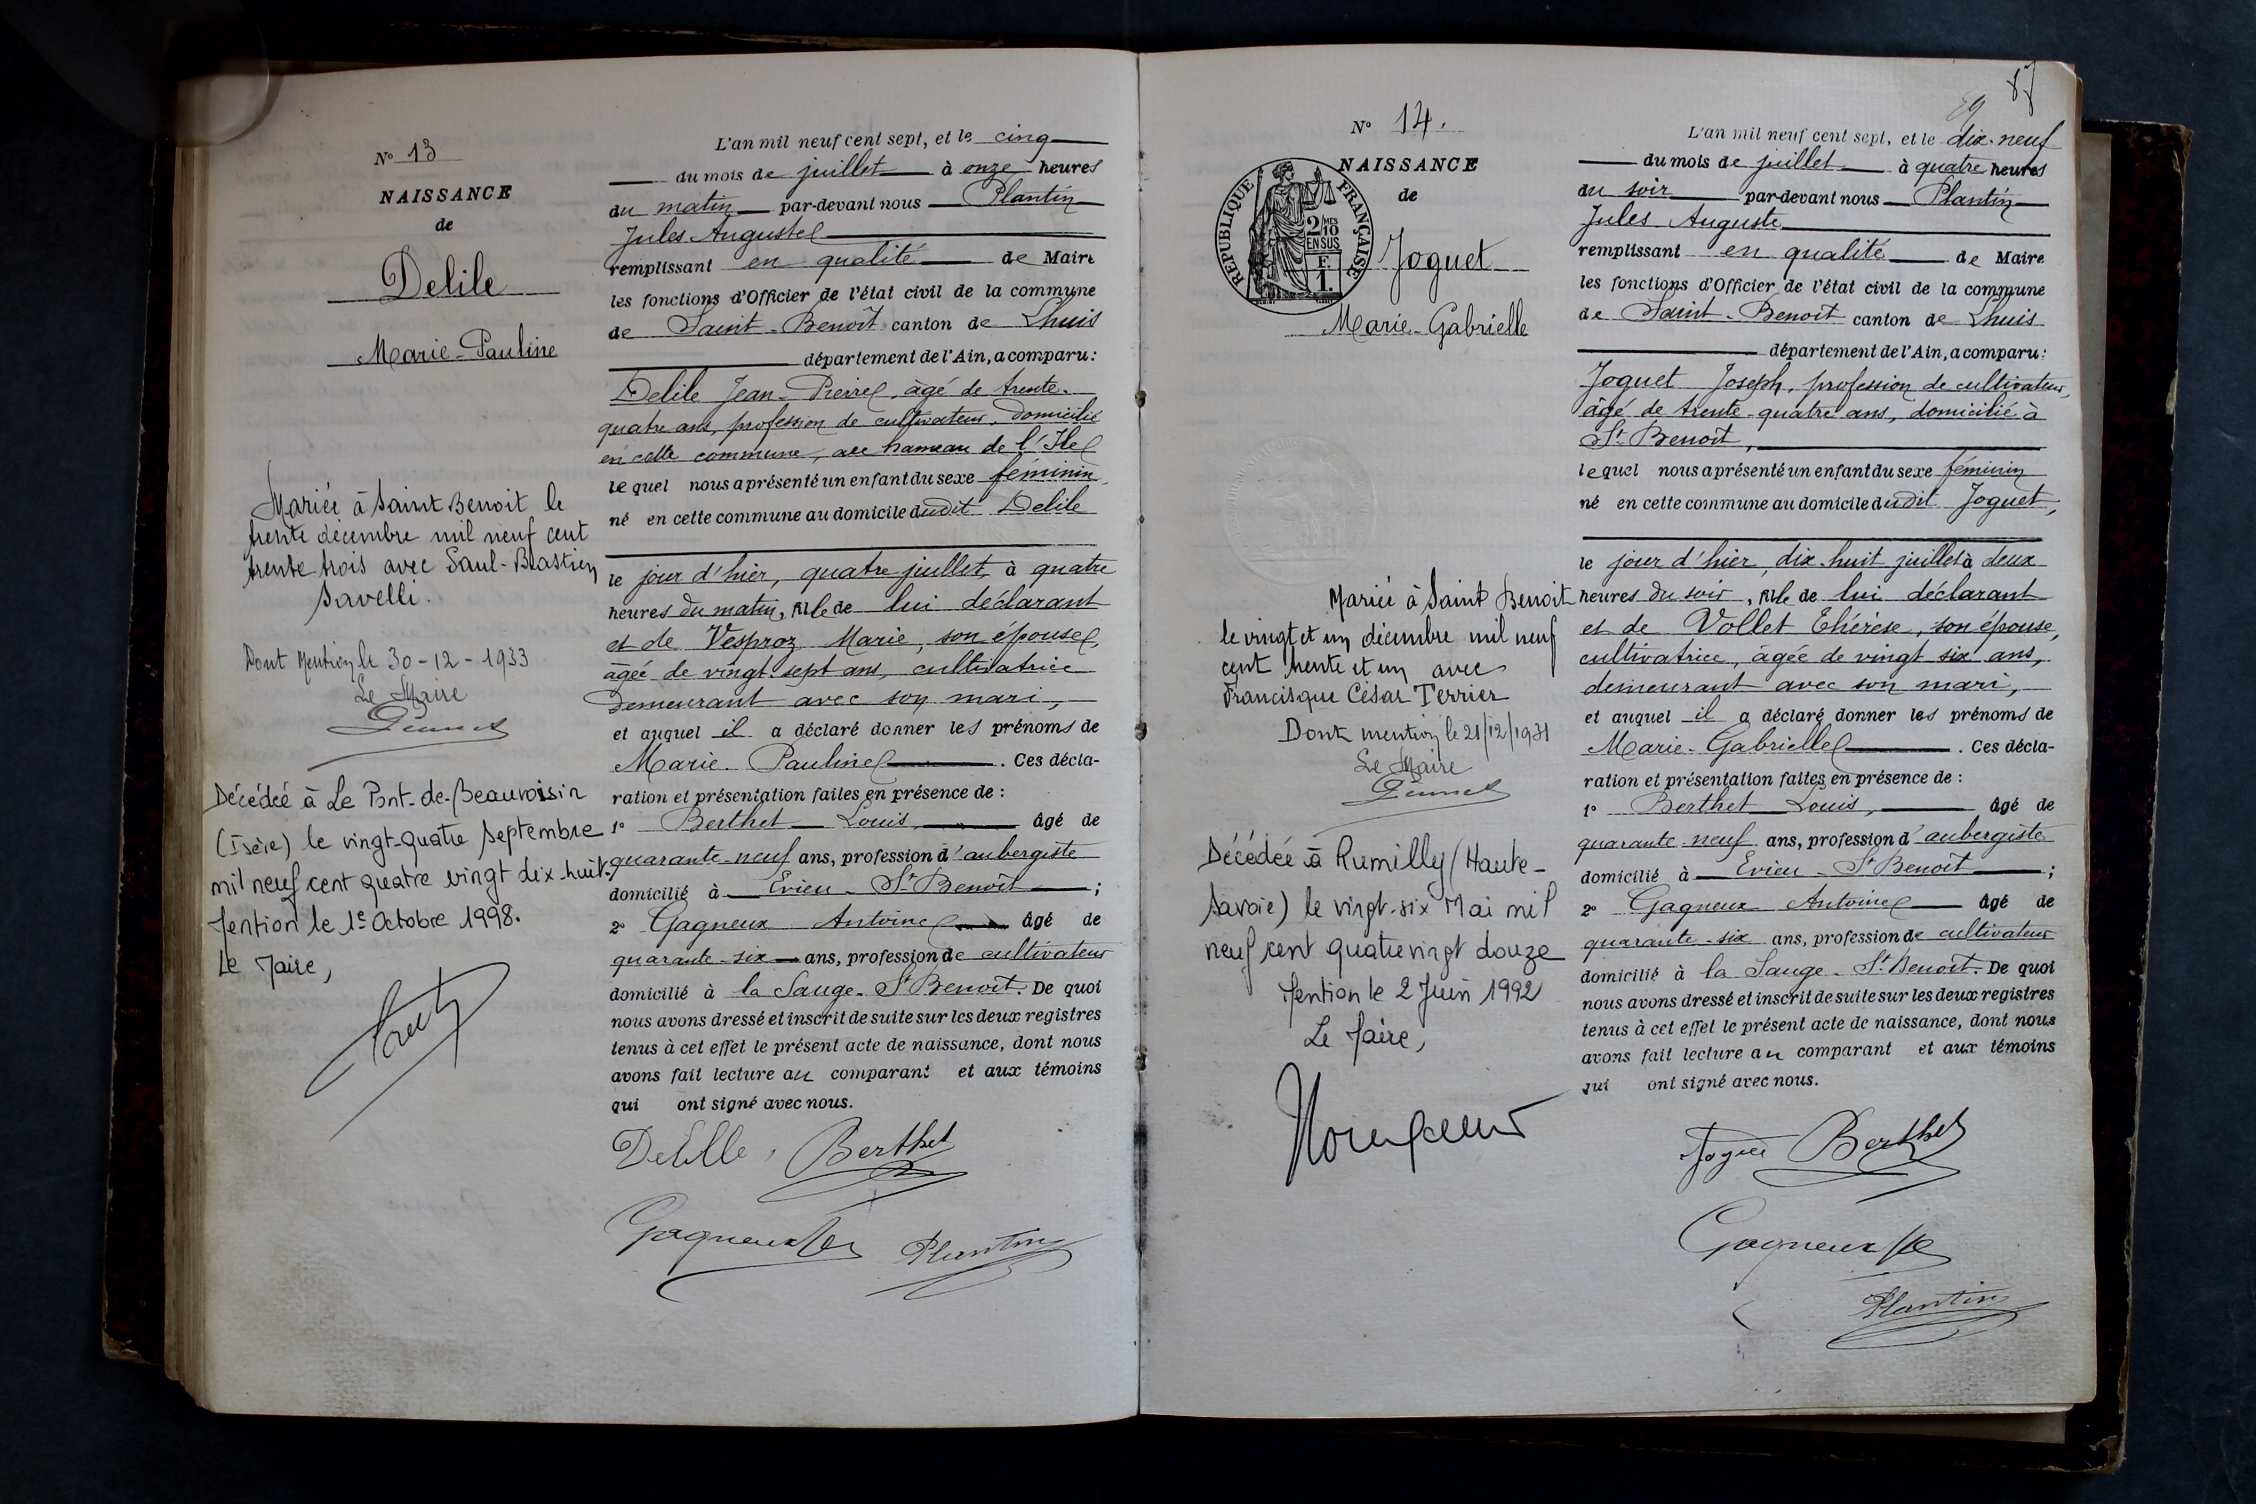 N° 13
NAISSANCE
de
Delile
Marie-Pauline
Mariée à Saint Benoit le
trente décembre mil neuf cent
trente trois avec Saul-Blastien
Savelli.
Dont Mention le 30-12-1933
Le Maire
Décédée à Le Pont-de-Beauvoisin
(Isère) le vingt-quatre septembre
mil neuf cent quatre vingt dix-huit.
Mention le 1e Octobre 1998.
Le Maire,
L'an mil neuf cent sept, et le cinq
du mois de juillet à onze heures
du matin par-devant nous Plantin
Jules Auguste
remplissant en qualité de Maire
les fonctions d'Officier de l'état civil de la commune
de Saint-Benoît canton de Lhuis
département de l'Ain, a comparu:
Delile Jean-Pierre, âgé de trente-
quatre ans, profession de cultivateur, domicilié
en cette commune, au hameau de l'Ile
lequel nous a présenté un enfant du sexe féminin
né en cette commune au domicile dudit Delile
le jour d'hier, quatre juillet, à quatre
heures du matin, fille de lui déclarant
et de Vesproz Marie, son épouse,
âgée de vingt-sept ans, cultivatrice
demeurant avec son mari,
et auquel il a déclaré donner les prénoms de
Marie-Pauline. Ces décla-
ration et présentation faites en présence de:
1° Berthet Louis, âgé de
quarante-neuf ans, profession d'aubergiste
domicilié à Evieu-St Benoît;
2° Gagneux Antoine âgé de
quarante-six ans, profession de cultivateur
domicilié à la Sauge-St Benoît. De quoi
nous avons dressé et inscrit de suite sur les deux registres
tenus à cet effet le présent acte de naissance, dont nous
avons fait lecture au comparant et aux témoins
qui ont signé avec nous.
Delille, Berthet
Gagneux
Plantin
87
N° 14.
NAISSANCE
de
RÉPUBLIQUE FRANÇAISE
2 MES
10
EN SUS
F.
1.
Joguet
Marie-Gabrielle
Mariée à Saint Benoit
le vingt et un décembre mil neuf
cent trente et un avec
Francisque César Terrier
Dont mention le 21/12/1931
Le Maire
Décédée à Rumilly (Haute-
Savoie) le vingt-six Mai mil
neuf cent quatre vingt douze
Mention le 2 Juin 1992
Le Maire,
L'an mil neuf cent sept, et le dix-neuf
du mois de juillet à quatre heures
du soir par-devant nous Plantin
Jules Auguste
remplissant en qualité de Maire
les fonctions d'Officier de l'état civil de la commune
de Saint-Benoît canton de Lhuis
département de l'Ain, a comparu:
Joguet Joseph, profession de cultivateur,
âgé de trente-quatre ans, domicilié à
St Benoît,
lequel nous a présenté un enfant du sexe féminin
né en cette commune au domicile dudit Joguet,
le jour d'hier, dix-huit juillet à deux
heures du soir, fille de lui déclarant
et de Vollet Thérèse, son épouse,
cultivatrice, âgée de vingt six ans,
demeurant avec son mari,
et auquel il a déclaré donner les prénoms de
Marie-Gabrielle. Ces décla-
ration et présentation faites en présence de:
1° Berthet Louis, âgé de
quarante-neuf ans, profession d'aubergiste
domicilié à Evieu-St Benoît;
2° Gagneux Antoine âgé de
quarante-six ans, profession de cultivateur
domicilié à la Sauge-St Benoît. De quoi
nous avons dressé et inscrit de suite sur les deux registres
tenus à cet effet le présent acte de naissance, dont nous
avons fait lecture au comparant et aux témoins
qui ont signé avec nous.
Joguet Berthet
Gagneux
Plantin